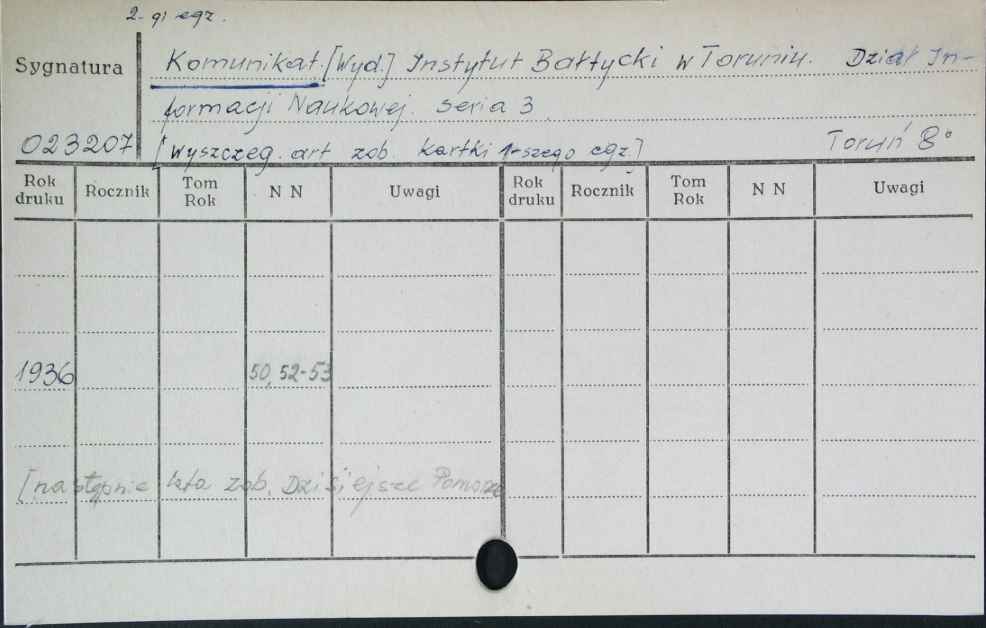 2-gi egz.
Sygnatura
Komunikat. [Wyd.] Instytut Bałtycki w Toruniu. Dział In-
formacji Naukowej. Seria 3
023207
[Wyszczeg. art zob. kartki 1-szego egz.]
Toruń 8°
Rok druku Rocznik Tom Rok N N Uwagi Rok druku Rocznik Tom Rok N N Uwagi
1936 50, 52-53
[następnie lata zob. Dzisiejsze Pomorze